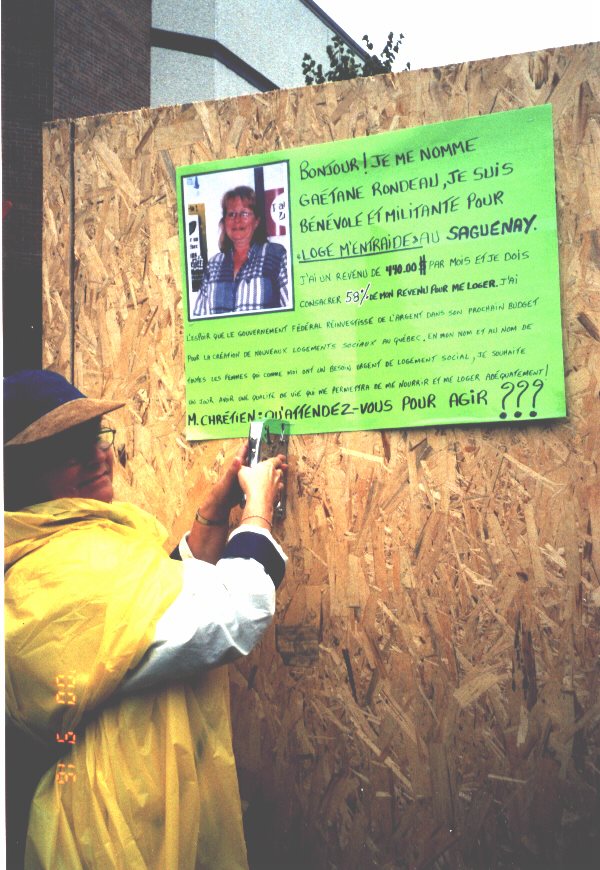 BONJOUR! JE ME NOMME
GAETANE RONDEAU, JE SUIS
BÉNÉVOLE ET MILITANTE POUR
«LOGE M'ENTRAIDE» AU SAGUENAY.
J'AI UN REVENU DE 490.00$ PAR MOIS ET JE DOIS
CONSACRER 58% DE MON REVENU POUR ME LOGER. J'AI
L'ESPOIR QUE LE GOUVERNEMENT FÉDÉRAL RÉINVESTISSE DE L'ARGENT DANS SON PROCHAIN BUDGET
POUR LA CRÉATION DE NOUVEAUX LOGEMENTS SOCIAUX AU QUÉBEC. EN MON NOM ET AU NOM DE
TOUTES LES FEMMES QUI COMME MOI ONT UN BESOIN URGENT DE LOGEMENT SOCIAL, JE SOUHAITE
UN JOUR AVOIR UNE QUALITÉ DE VIE QUI ME PERMETTRA DE ME NOURRIR ET ME LOGER ADÉQUATEMENT!
M. CHRÉTIEN: QU'ATTENDEZ-VOUS POUR AGIR ???